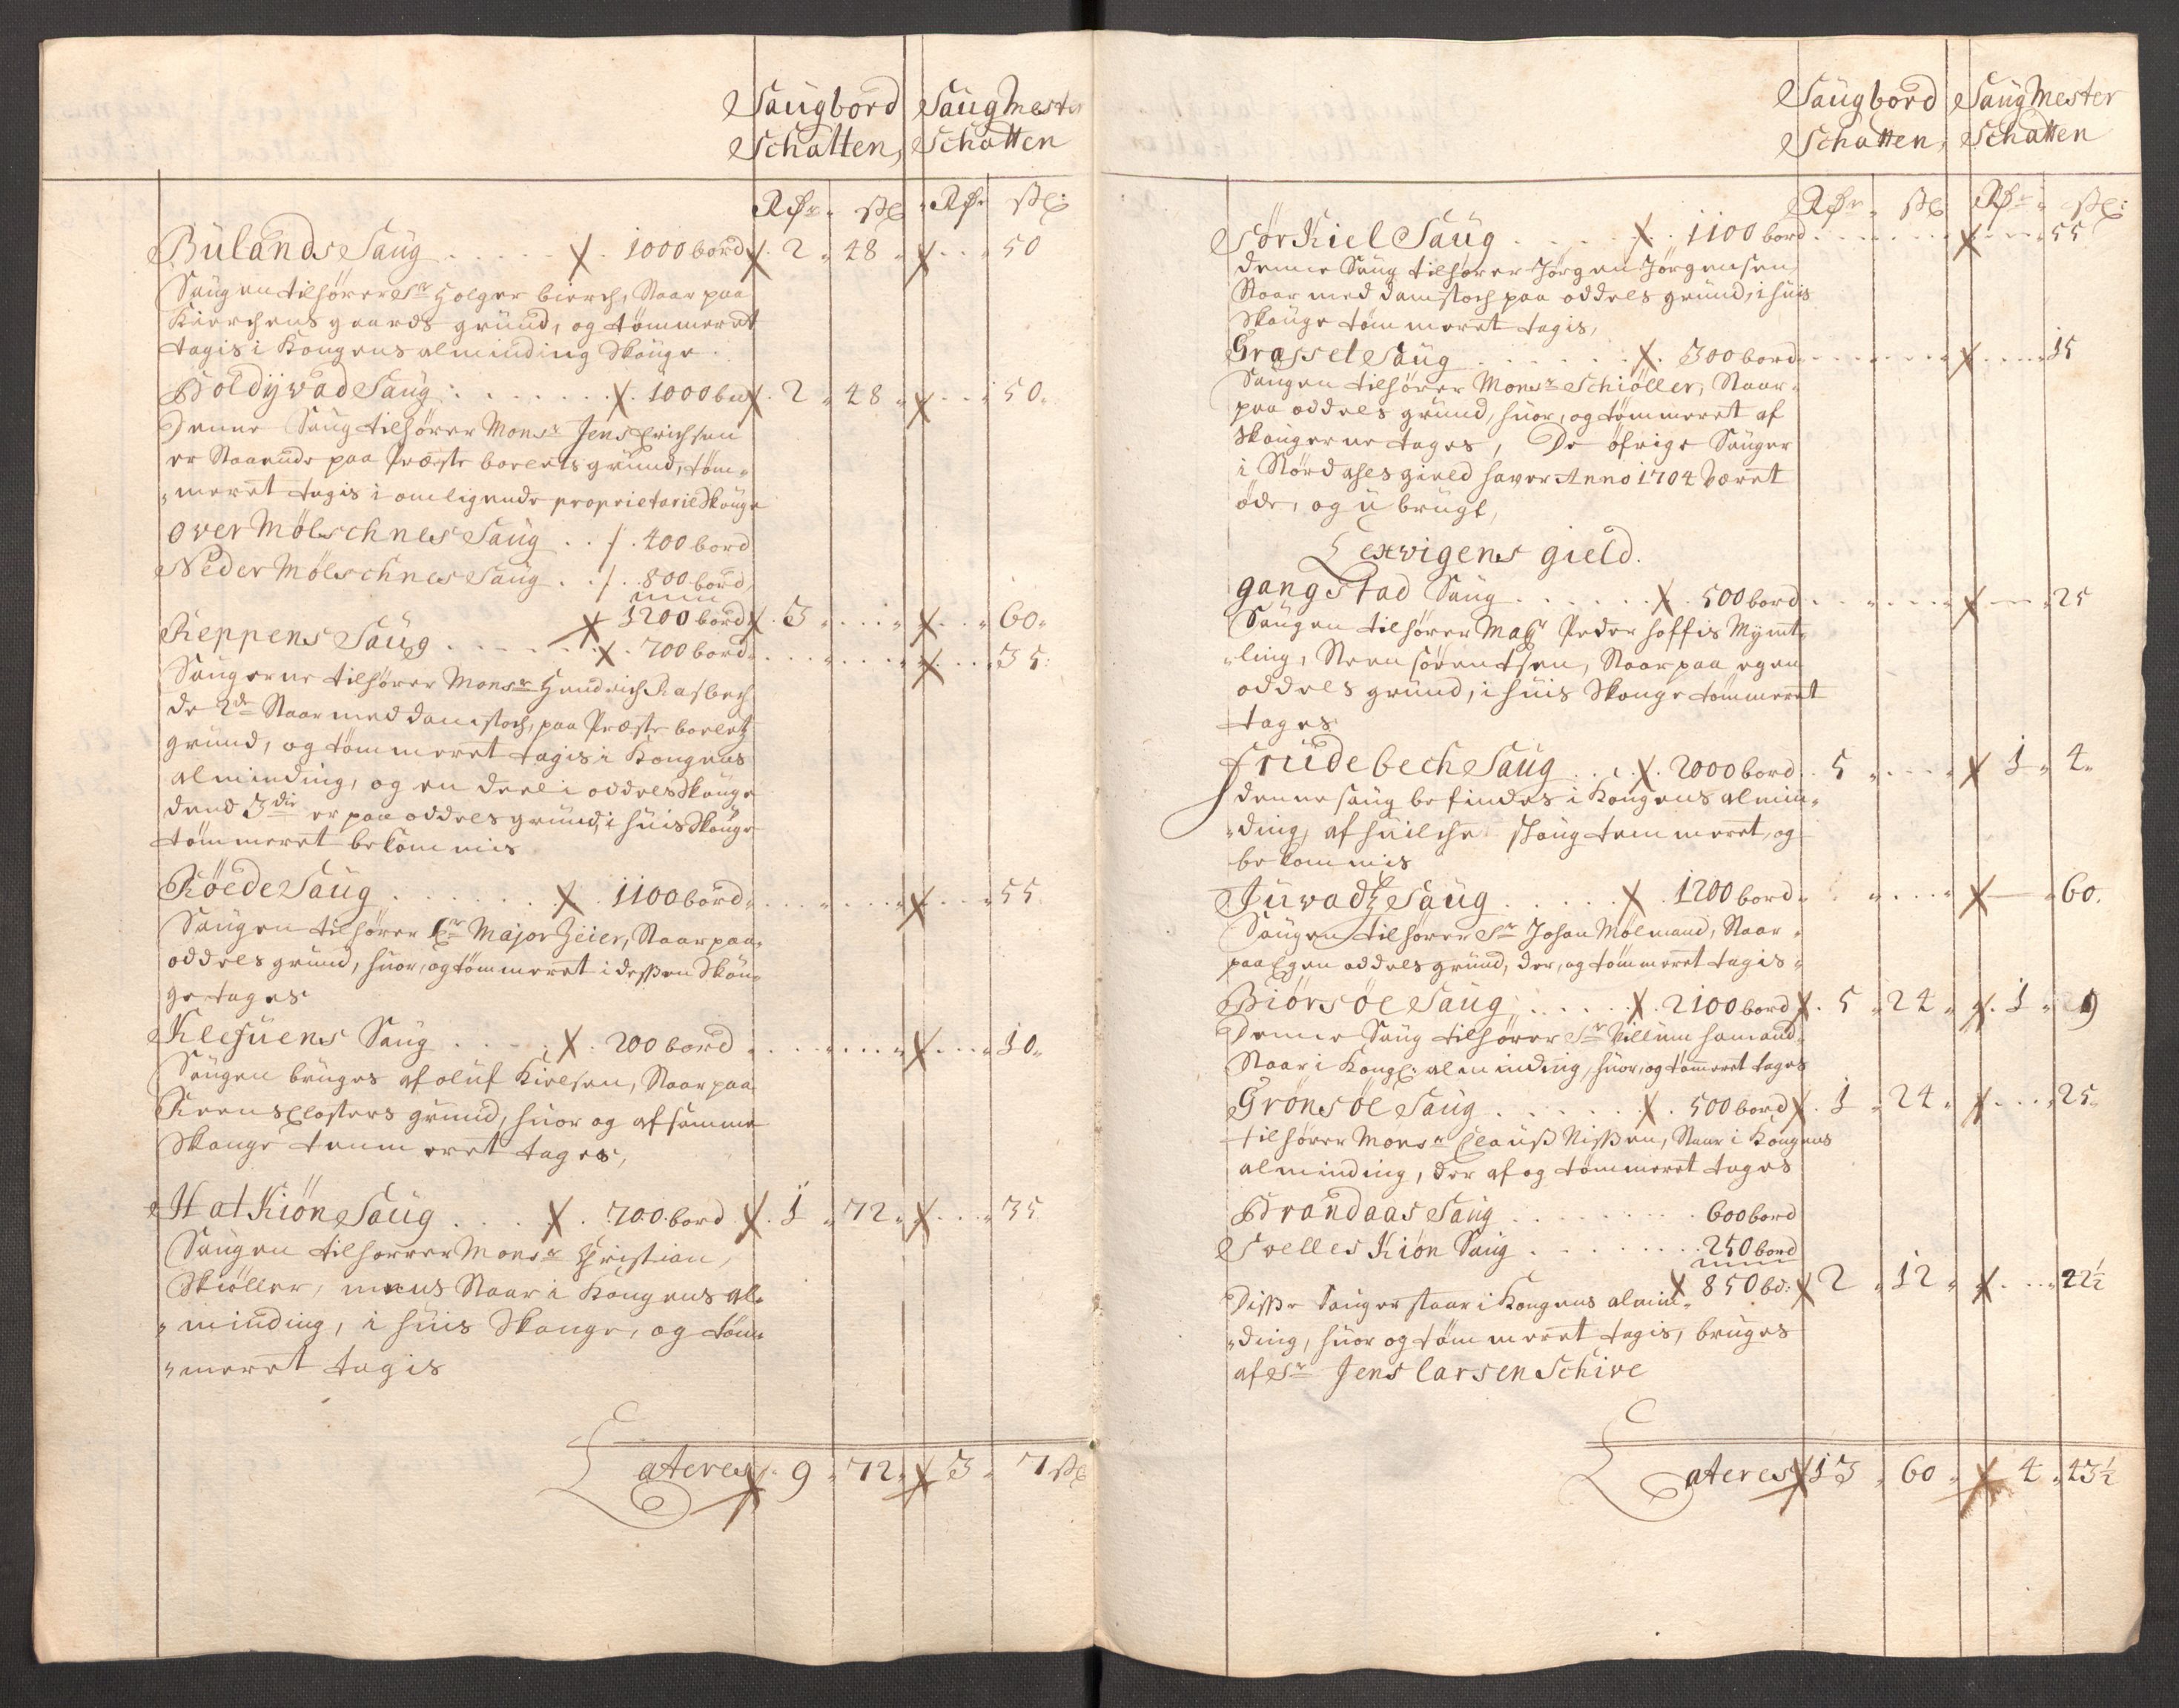 Saugbord Saug Mester
Schatten, Schatten
Rdr. sk Rdr. sk:
Bülands Saug . . . . . 1000 bord 2 48 . . . 50
Saugen tilhører Sr Holger bierch, Staar paa
Kierchens gaards grund, og tømmeret
tagis i Kongens alminding Skouge.
Holdijvad Saug: . . . . . . 1000 bd 2 48 . . . 50.
Denne Saug tilhører Monsr Jens Erichsen
er Staaende paa Præste boelets grund, tøm„
„meret tagis i omligende proprietarie Skouge
over Mølschnes Saug . . 400 bord
Neder Mølschnes Saug . . 800 bord
1200 bord 3 . . . 60„
Reppens Saug . . . . . 700 bord . . . 35:
Saugerne tilhører Monsr Hendrich Rasbech
de 2de Staar med damstoch, paa Præste boeletz
grund, og tømmeret tagis i Kongens
alminding, og en deel i oddels Skouge
dend 3die er paa oddels grund, i huis Skouge
tømmeret bekommis
Röede Saug . . . . . . 1100 bord . . . 55.
Saugen tilhører Hr Major Zeier, Staar paa
oddels grund, huor, og tømmeret i dessen Skou„
ge tages
Klefuens Saug . . . . 200 bord . . . 10„
Saugen bruges af oluf Kielsen, Staar paa
Reens Closters grund, huor og af samme
Skouge tømmeret tages,
Hatkiön Saug . . . 700 bord 1 72 . . . 35
Saugen tilhørrer Monsr Christian
Skiøller, mens Staar i Kongens al„
„minding, i huis Skouge, og tøm„
„meret tagis
Lateres 9 72 3 7 sk
Saugbord Saug Mester
Schatten, Schatten
Rdr. sk Rdr. sk:
Sørkiel Saug . . . . . 1100 bord . . . 55
denne Saug tilhører Jørgen Jørgensen,
Staar med damstoch paa oddels grund, i huis
Skouge tømmeret tagis,
Grassel Saug . . . . . . 300 bord . . . 15
Saugen tilhører Monsr Schiøller, Staar
paa oddels grund, huor, og tømmeret af
Skougerne tages, De øfrige Sauger
i Størdahls gield haver Anno 1704 været
øde, og u brugt,
Lexvigens gield.
gangstad Saug . . . . . . 500 bord . . . 25
Saugen tilhører Magr Peder hoffis Mynt„
„ling, Steen Sørentsen, Staar paa egen
oddels grund, i huis Skouge tømmeret
tages
frudebech Saug . . . 2000 bord . 5 . . . 1 4„
denne saug befindes i Kongens almin„
„ding, af huilche skoug tømmeret, og
bekommis
Juvadtz Saug . . . . . 1200 bord . . . 60.
Saugen tilhører Sr Johan Mølmand, Staar
paa Egen oddels grund, der, og tømmeret tagis
Biørsöe Saug . . . . . 2100 bord 5 24 1 9
Denne Saug tilhører Sr Villum hamand
Staar i Kongl: alminding, huor, og tømmeret tages
Grønsöe Saug . . . . . 500 bord 1 24 . . . 25
tilhører Monsr Clauss Nissen, Staar i Kongens
alminding, der af og tømmeret tages
Brandaas Saug . . . . . . . 600 bord
Svelleskiön Saug . . . . . . 250 bord
850 bd: 2 12 . . . 22½
Disse Sauger staar i Kongens almin„
„ding, huor og tømmeret tagis, bruges
af Sr Jens Larsen Schive
Lateres 13 60 4 43½